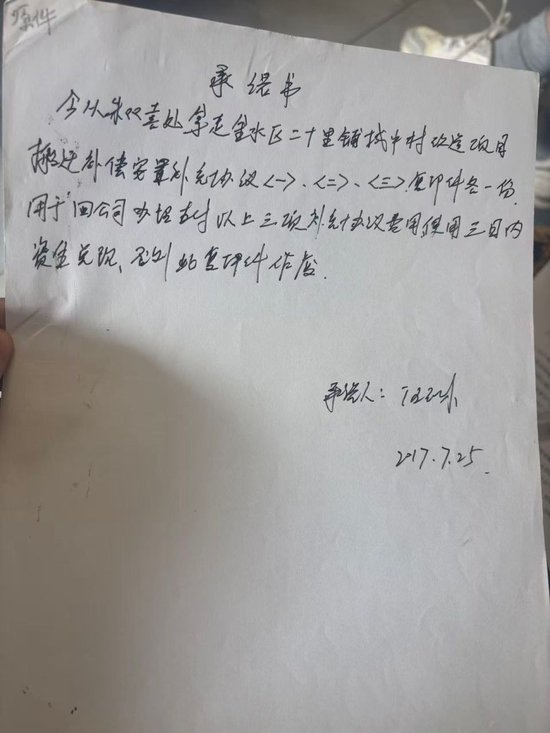 原件
承诺书
今从朱双喜处拿走金水区二十里铺城中村改造项目
搬迁补偿安置补充协议<一>、<二>、<三>复印件各一份
用于回公司办理支付以上三项补充协议费用使用三日内
资金兑现、否则此复印件作废.
承诺人:
2017.7.25.